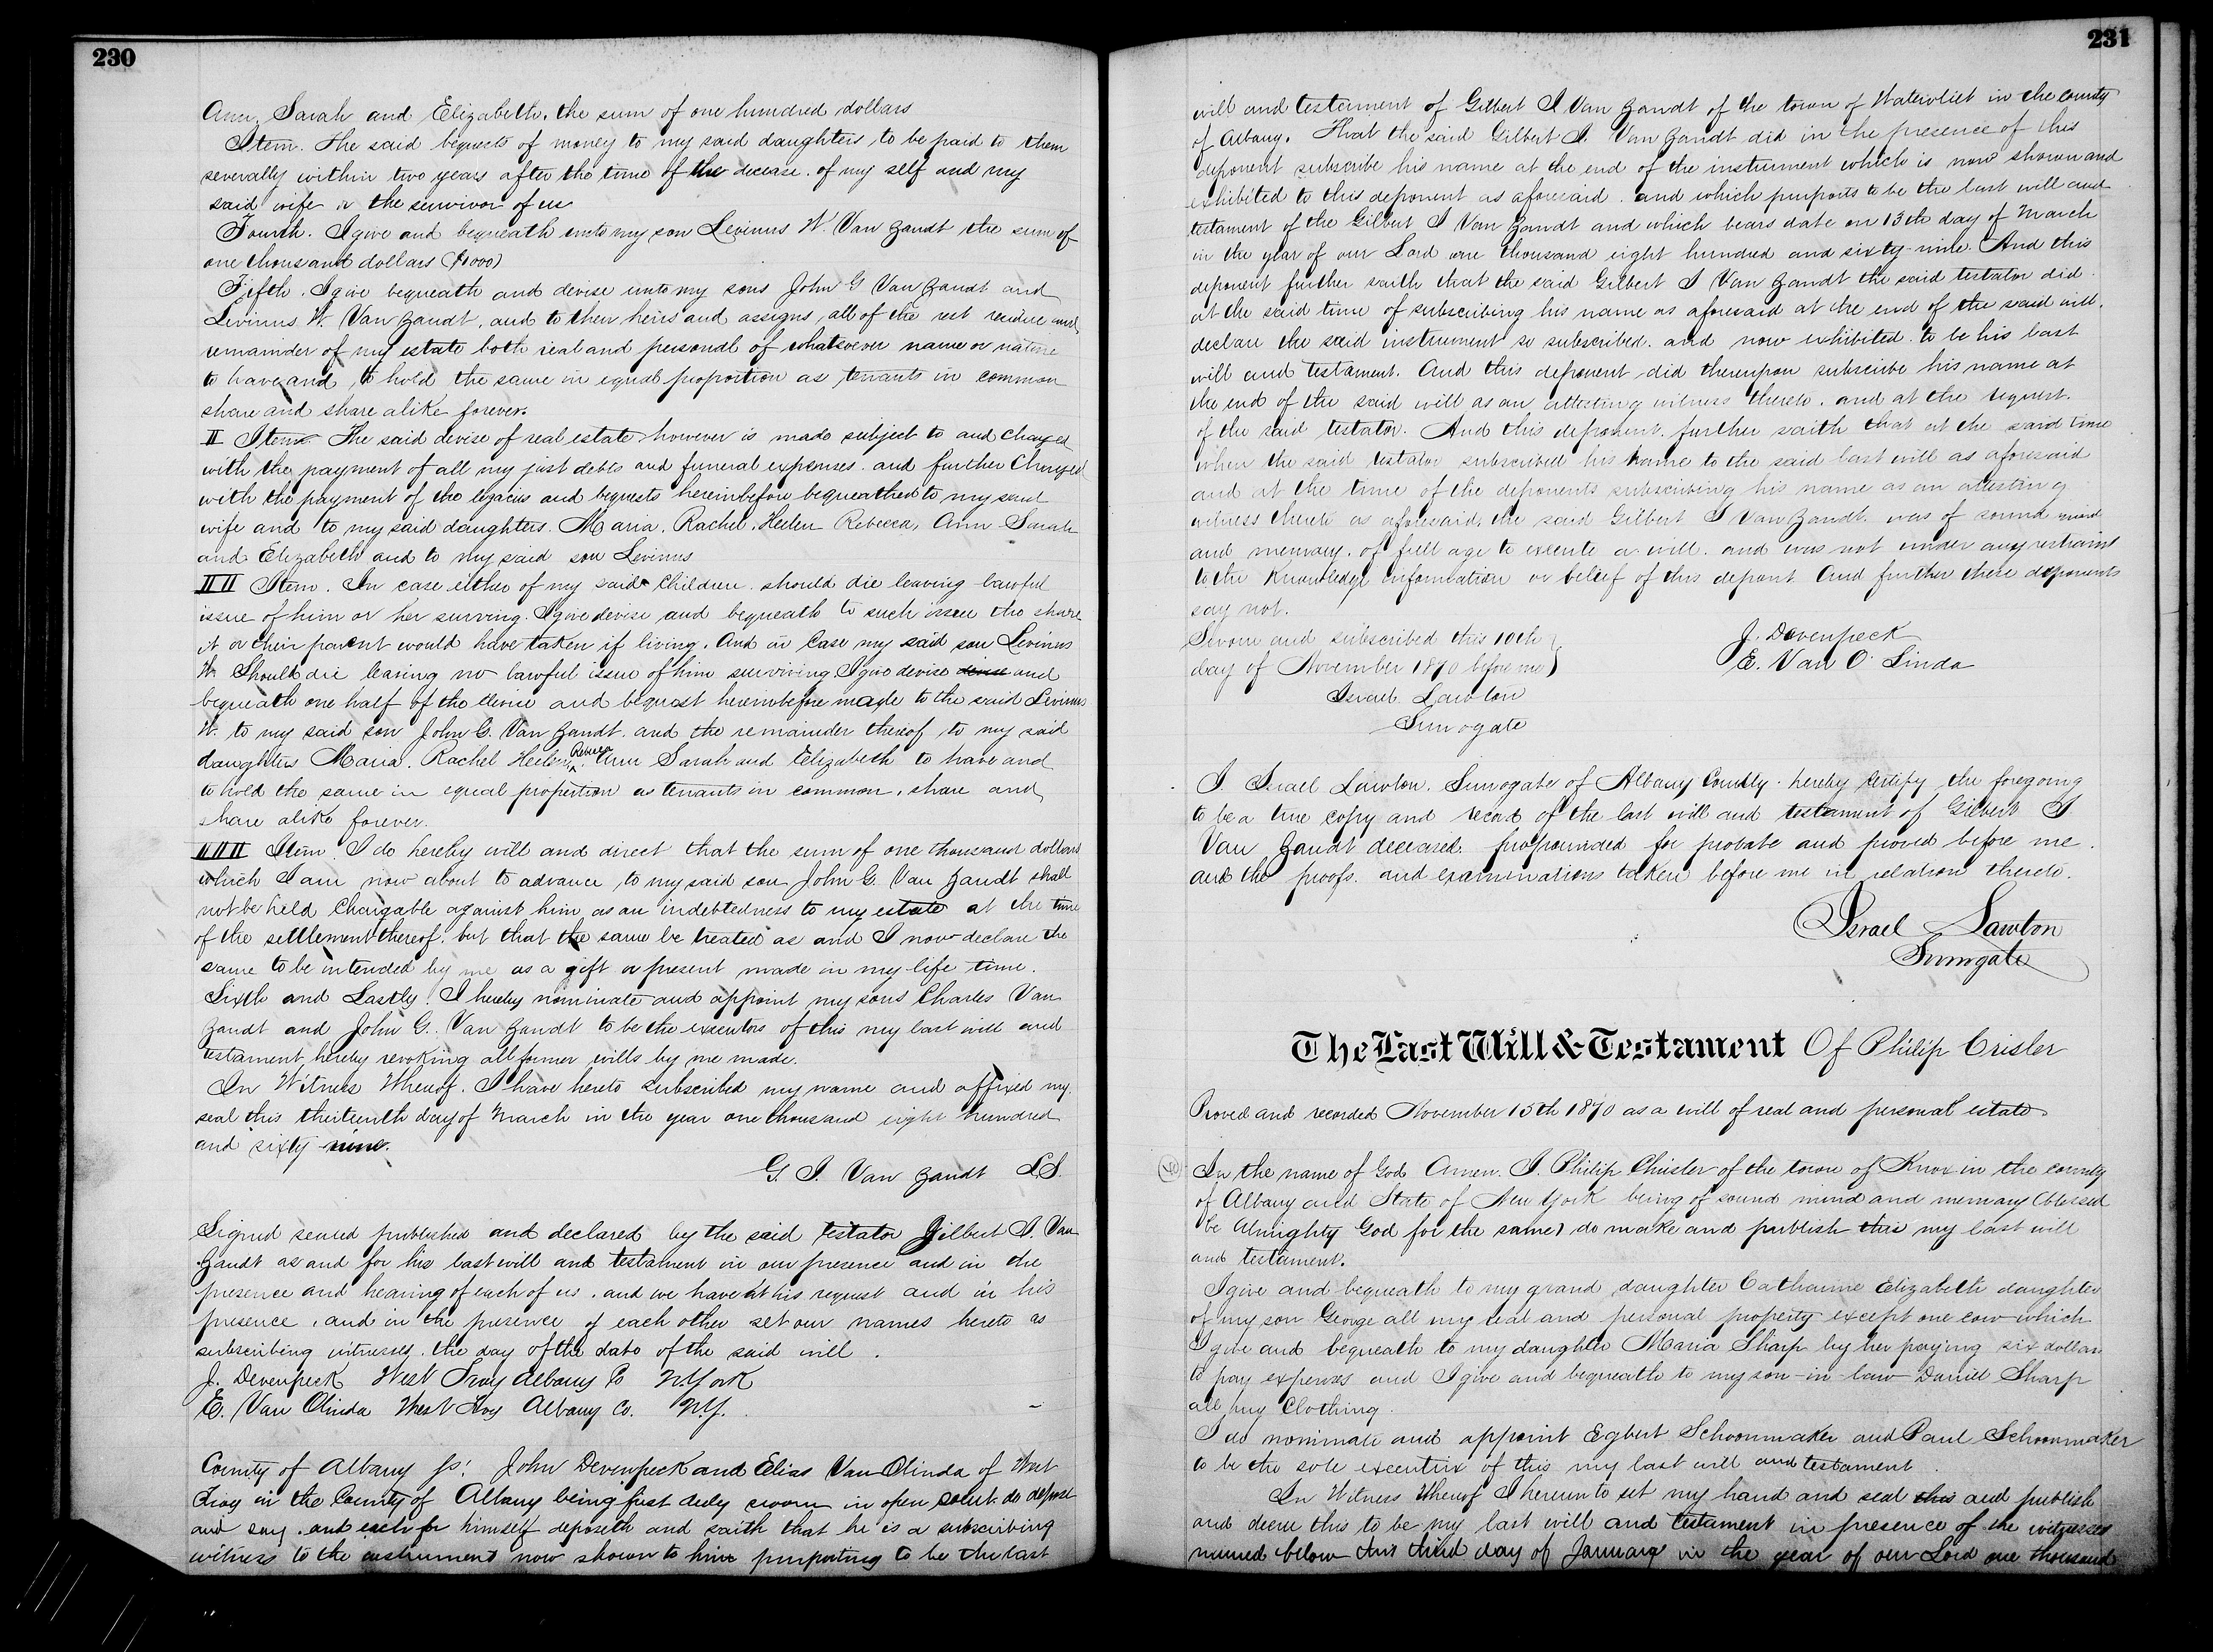 230
Ann, Sarah and Elizabeth, the sum of one hundred dollars
Item. The said bequests of money to my said daughters, to be paid to them
severally within two years after the time of the decease of my self and my
said wife or the survivor of us
Fourth. I give and bequeath unto my son Levinus W. Van Zandt the sum of
one thousand dollars ($1000)
Fifth. I give bequeath and devise unto my sons John G Van Zandt and
Levinus W. Van Zandt, and to their heirs and assigns, all of the rest residue and
remainder of my estate both real and personal of whatsoever name or nature
to have and to hold the same in equal proportion as tenants in common
share and share alike forever.
II Item The said devise of real estate however is made subject to and charged
with the payment of all my just debts and funeral expenses. and further charged
with the payment of the legacies and bequests hereinbefore bequeathed to my said
wife and to my said daughters. Maria, Rachel, Heelen Rebecca, Ann Sarah
and Elizabeth and to my said son Levinus
IIII Item. In case either of my said children should die leaving lawful
issue of him or her surving. I give devise and bequeath to such issue the share
it or their parent would have taken if living. And in case my said son Levinus
W. Should die leaving no lawful issue of him surviving I give devise devise and
bequeath one half of the devise and bequest hereinbefore made to the said Levinus
W. to my said son John G. Van Zandt. and the remainder thereof to my said
daughters Maria. Rachel Heelen Rebecca Ann Sarah and Elizabeth to have and
to hold the same in equal proportion as tenants in common, share and
share alike forever.
IIIIII Item. I do hereby will and direct that the sum of one thousand dollars
which I am now about to advance to my said son John G. Van Zandt shall
not be held chargable against him as an indebtedness to my estate at the time
of the settlement thereof. but that the same be treated as and I now declare the
same to be intended by me as a gift or present made in my life time.
Sixth and Lastly. I hereby nominate and appoint my sons Charles Van
Zandt and John G. Van Zandt to be the executors of this my last will and
testament hereby revoking all former wills by me made.
In Witness Whereof. I have hereto subscribed my name and affixed my
seal this thirteenth day of March in the year one thousand eight hundred
and sixty nine.
G. I. Van Zandt L.S.
Signed sealed published and declared by the said testator Gilbert I. Van
Zandt as and for his last will and testament in our presence and in the
presence and hearing of each of us. and we have at his request and in his
presence, and in the presence of each other set our names hereto as
subscribing witnesses the day of the date of the said will.
J. Devenpeck West Troy Albany Co N. York
E. Van Olinda West Troy Albany Co. N.Y.
County of Albany ss: John Devenpeck and Elias Van Olinda of West
Troy in the County of Albany being first duly sworn in open court do depose
and say. and each for himself deposeth and saith that he is a subscribing
witness to the instrument now shown to him purporting to be the last
231
will and testament of Gilbert I. Van Zandt of the town of Watervliet in the county
of Albany. That the said Gilbert I. Van Zandt did in the presence of this
deponent subscribe his name at the end of the instrument which is now shown and
exhibited to this deponent as aforesaid. and which purports to be the last will and
testament of the Gilbert I Van Zandt and which bears date on 13th day of March
in the year of our Lord one thousand eight hundred and sixty-nine. And this
deponent further saith that the said Gilbert I Van Zandt the said testator did
at the said time of subscribing his name as aforesaid at the end of the said will,
declare the said instrument so subscribed. and now exhibited. to be his last
will and testament. And this deponent did thereupon subscribe his name at
the end of the said will as an attesting witness thereto. and at the request.
of the said testator. And this deponent further saith that at the said time
when the said testator subscribed his name to the said last will as aforesaid
and at the time of the deponents subscribing his name as an attesting
witness thereto as aforesaid, the said Gilbert I Van Zandt. was of sound mind
and memory. of full age to execute a will. and was not under any restraint
to the knowledge information or belief of this depont And further these deponents
say not.
Sworn and subscribed this 10th
day of November 1870 before me
Israel Lawton
Surrogate
J. Devenpeck
E. Van O. Linda
I Israel Lawton. Surrogate of Albany County. hereby certify the foregoing
to be a true copy and record of the last will and testament of Gilbert I
Van Zandt deceased. propounded for probate and proved before me.
and the proofs. and examinations taken before me in relation thereto.
Israel Lawton
Surrogate
The Last Will & Testament Of Philip Crisler
Proved and recorded November 15th 1870 as a will of real and personal estate
In the name of God Amen. I. Philip Chrisler of the town of Knox in the county
of Albany and State of New York being of sound mind and memory (blessed
be Almighty God for the same) do make and publish this my last will
and testament.
I give and bequeath to my grand daughter Catharine Elizabeth daughter
of my son George all my real and personal property except one cow which
I give and bequeath to my daughter Maria Sharp by her paying six dollars
to pay expenses and I give and bequeath to my son-in-law Daniel Sharp
all my Clothing.
I do nominate and appoint Egbert Schoonmaker and Paul Schoonmaker
to be the sole executrix of this my last will and testament.
In Witness Whereof I hereunto set my hand and seal this and publish
and decree this to be my last will and testament in presence of the witnesses
named below this third day of January in the year of our Lord one thousand